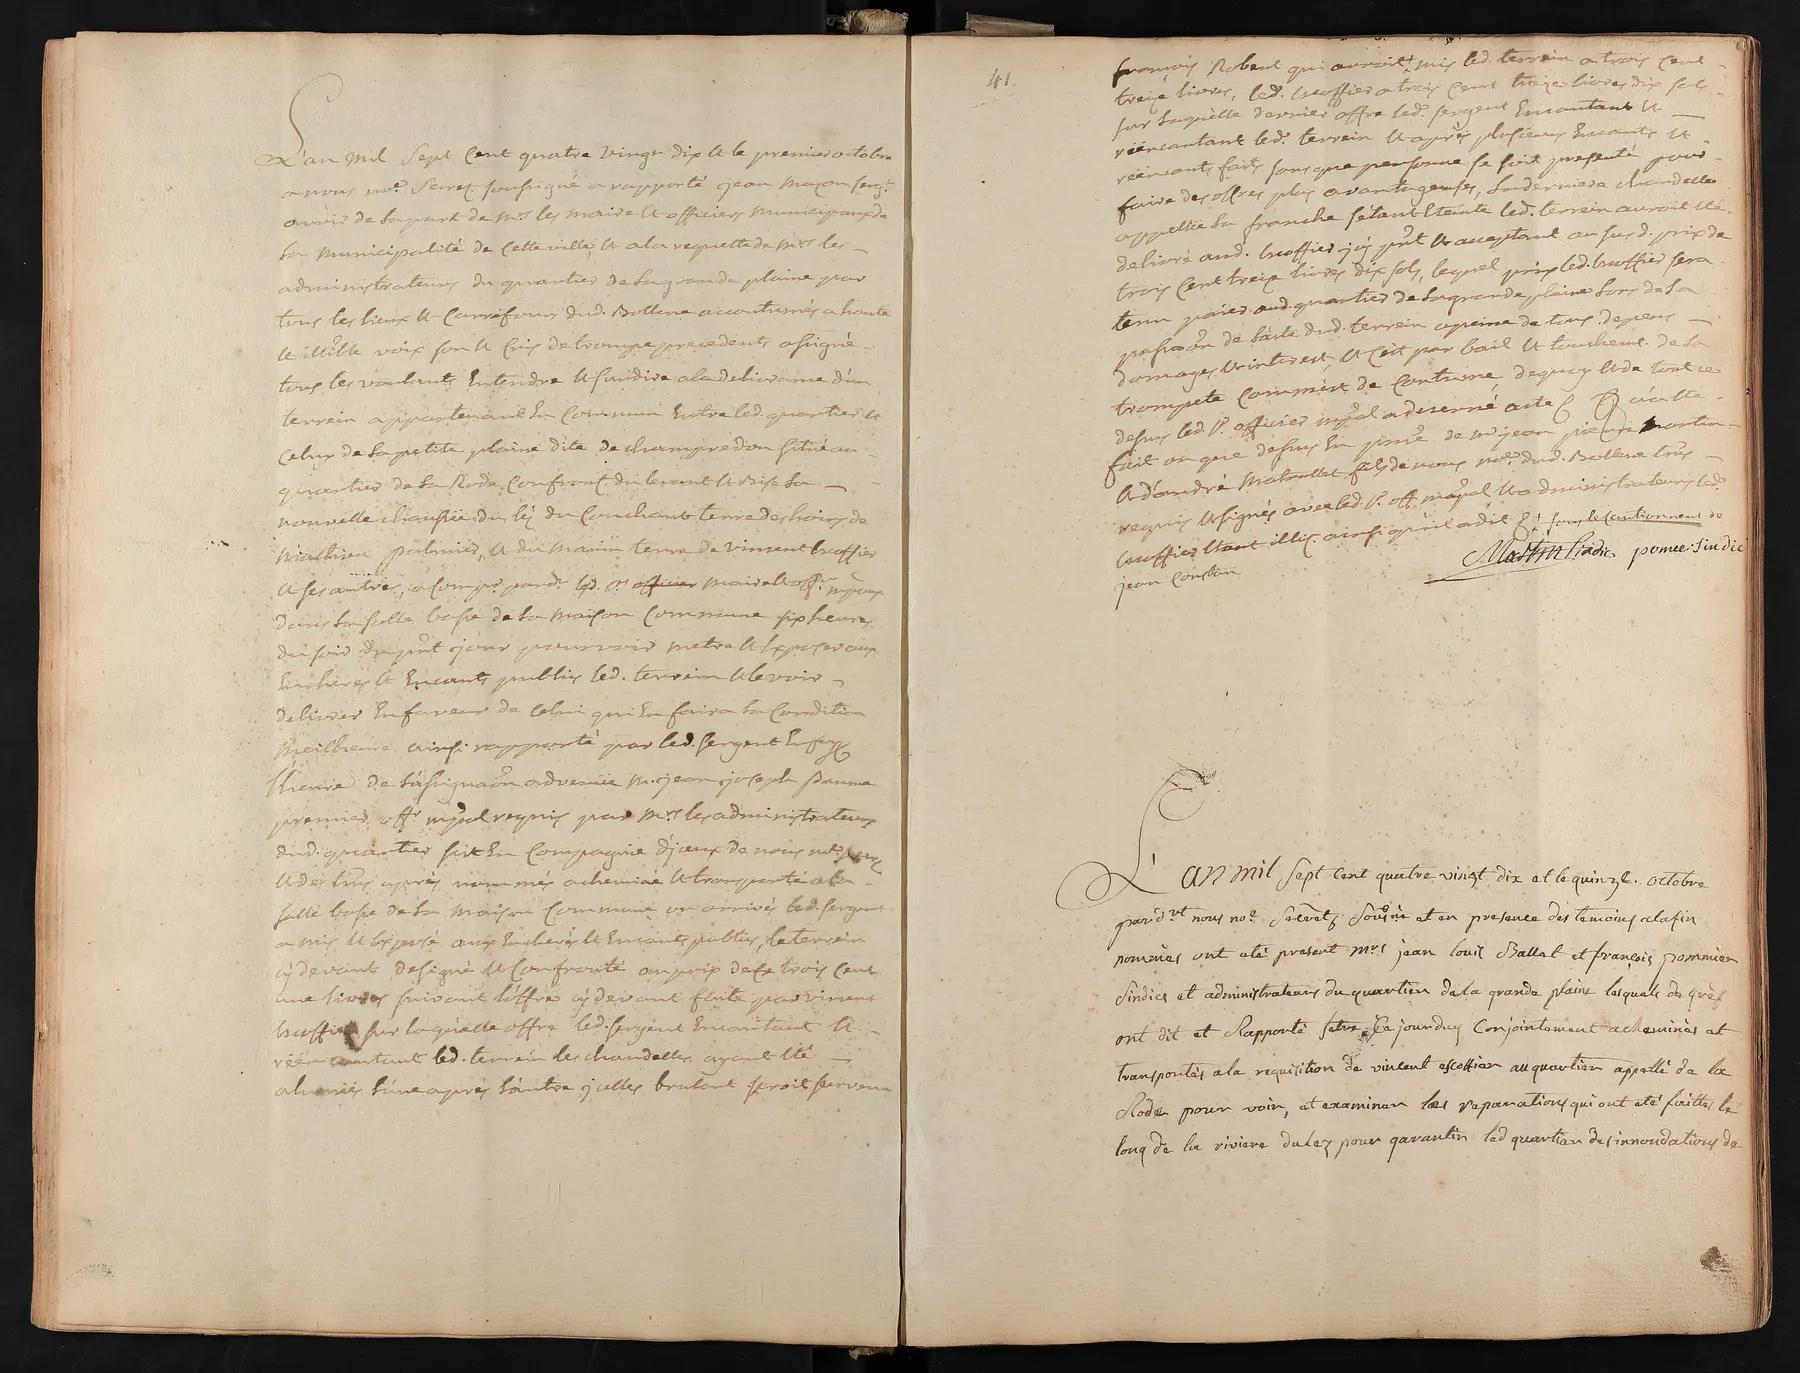 L'an mil sept cent quatre vingt dix & le premier octobre
a nous no.re secret. soussigné a rapporté jean mazon serg.t
avoir de la part de m.rs les maire & officiers municipaux de
la municipalité de cette ville, & a la requette de m.rs les
administrateurs du quartier de la grande plaine par
tous les lieux & carrefours dud. Bollene accoutumés a haute
& voix son & cris de trompe precedents assigné
tous les voulants entendre & surdire a la delivrance d'un
terrein appartenant en commun entre led. quartier &
celuy de la petite plaine dite de champredon situé au
quartier de la Rode confront. du levant & bise la
nouvelle chaussée du léz du couchant terre des hoirs de
mathieu palmier, & du marin terre de vincent Escoffier
& ses autres, a comp. pard. led. s.rs officier maire & off.rs m.paux
dans la salle basse de la maison commune six heures
du soir du p.nt jour pour voir metre & exposer aux
encheres & encants publics led. terrein & le voir
delivrer en faveur de celui qui en faira la condition
meilheure ainsi rapporté par led. sergent en foy
l'heure de l'assignaôn advenüe m. jean joseph
premier off.r m.pal requis par m.rs les administrateurs
dud. quartier s'est en compagnie d'jceux de nous no.re secre
& des tms après nommés acheminé & transporté a la
salle basse de la maison commune ou arrivés led. sergent
a mis & exposé aux encheres & encants publics, le terrein
cy devant designé & confronté au prix de trois cent
une livres suivant l'offre cy devant faite par vincent
Escoffier sur laquelle offre led. sergent encantant &
réencantant led. terrein les chandelles ayant été
alumés l'une après l'autre jcelles brulant seroit survenu
41
françois Robert qui auroit mis led. terrein a trois cent
treize livres, led. Escoffier a trois cent treize livres dix sols
sur laquelle derniere offre led. sergent encantant &
réencantant led. terrein & après plusieurs encants &
réencants faits sans que personne se soit presenté pour
faire des offres plus avantageuses, la derniere chandelle
appellée la franche s'étant éteinte led. terrein auroit été
delivré aud. Escoffier jcy p.nt & acceptant au sus d. prix de
trois cent treize livres dix sols, lequel prix led. Escoffier sera
tenu paier aud. quartier de la grande plaine lors de la
passaôn de l'acte dud. terrein a peine de tous depens
domages & interest, & c'est par bail & touchem.t de la
trompete comm'est de coutume, dequoy & de tout ce
dessus led. s.r officier m.pal a decerné acte
fait ou que dessus en p.nce de m.e jean pierre martin
& d'andré fils de nous no.re dud. Bollene tms
requis & signés avec led. s.r off. m.pal & administrateurs led.
Escoffier étant illit. ainsi qu'il a dit + sous le cautionnent de
jean constan
Martin sindic pomier sindic
L'an mil sept cent quatre vingt dix et le quinze. octobre
pard.vt nous no.re secret. soussigné et en presence des temoins a la fin
nommés ont eté present m.rs jean louis Ballet et françois pommier
sindics et administrateurs du quartier de la grande plaine lesquels de gré
ont dit et Rapporté setre cejourduy conjointement acheminés et
transportés a la requisition de vincent escoffier au quartier appellé de la
Rode pour voir, et examiner les reparations qui ont eté faittes le
long de la riviere du lez pour garantir led quartier des innondations de